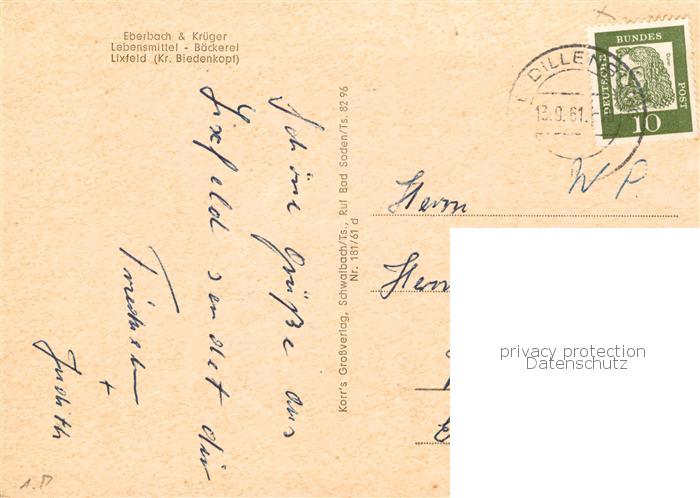 Eberbach & Krüger
Lebensmittel - Bäckerei
Lixfeld (Kr. Biedenkopf)
Schöne Grüße aus
Lixfeld sendet dir
Friedhelm
+
Judith
Korr's Großverlag, Schwalbach/Ts., Ruf Bad Soden/Ts. 82 96
Nr. 181/61 d
DEUTSCHE BUNDES POST
Dürer
10
DILLEN
13.9.61.
Herrn
Herrn
privacy protection
Datenschutz